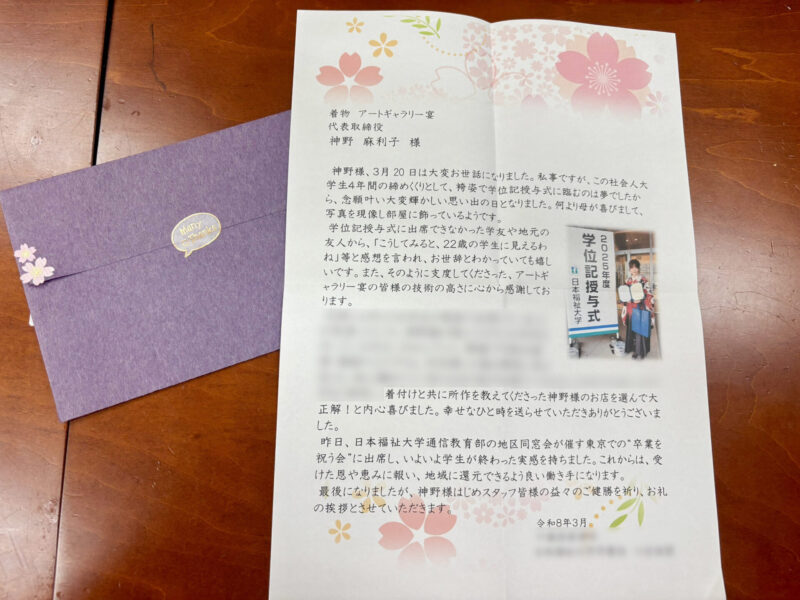 着物　アートギャラリー宴
代表取締役
神野　麻利子　様
神野様、3月20日は大変お世話になりました。私事ですが、この社会人大
学生4年間の締めくくりとして、袴姿で学位記授与式に臨むのは夢でしたか
ら、念願叶い大変輝かしい思い出の日となりました。何より母が喜びまして、
写真を現像し部屋に飾っているようです。
学位記授与式に出席できなかった学友や地元の
友人から、「こうしてみると、22歳の学生に見えるわ
ね」等と感想を言われ、お世辞とわかっていても嬉し
いです。また、そのように支度してくださった、アートギ
ャラリー宴の皆様の技術の高さに心から感謝してお
ります。
2025年度
学位記授与式
日本福祉大学
着付けと共に所作を教えてくださった神野様のお店を選んで大
正解！と内心喜びました。幸せなひと時を送らせていただきありがとうございま
した。
昨日、日本福祉大学通信教育部の地区同窓会が催す東京での“卒業を
祝う会”に出席し、いよいよ学生が終わった実感を持ちました。これからは、受
けた恩や恵みに報い、地域に還元できるよう良い働き手になります。
最後になりましたが、神野様はじめスタッフ皆様の益々のご健勝を祈り、お礼
の挨拶とさせていただきます。
令和8年3月